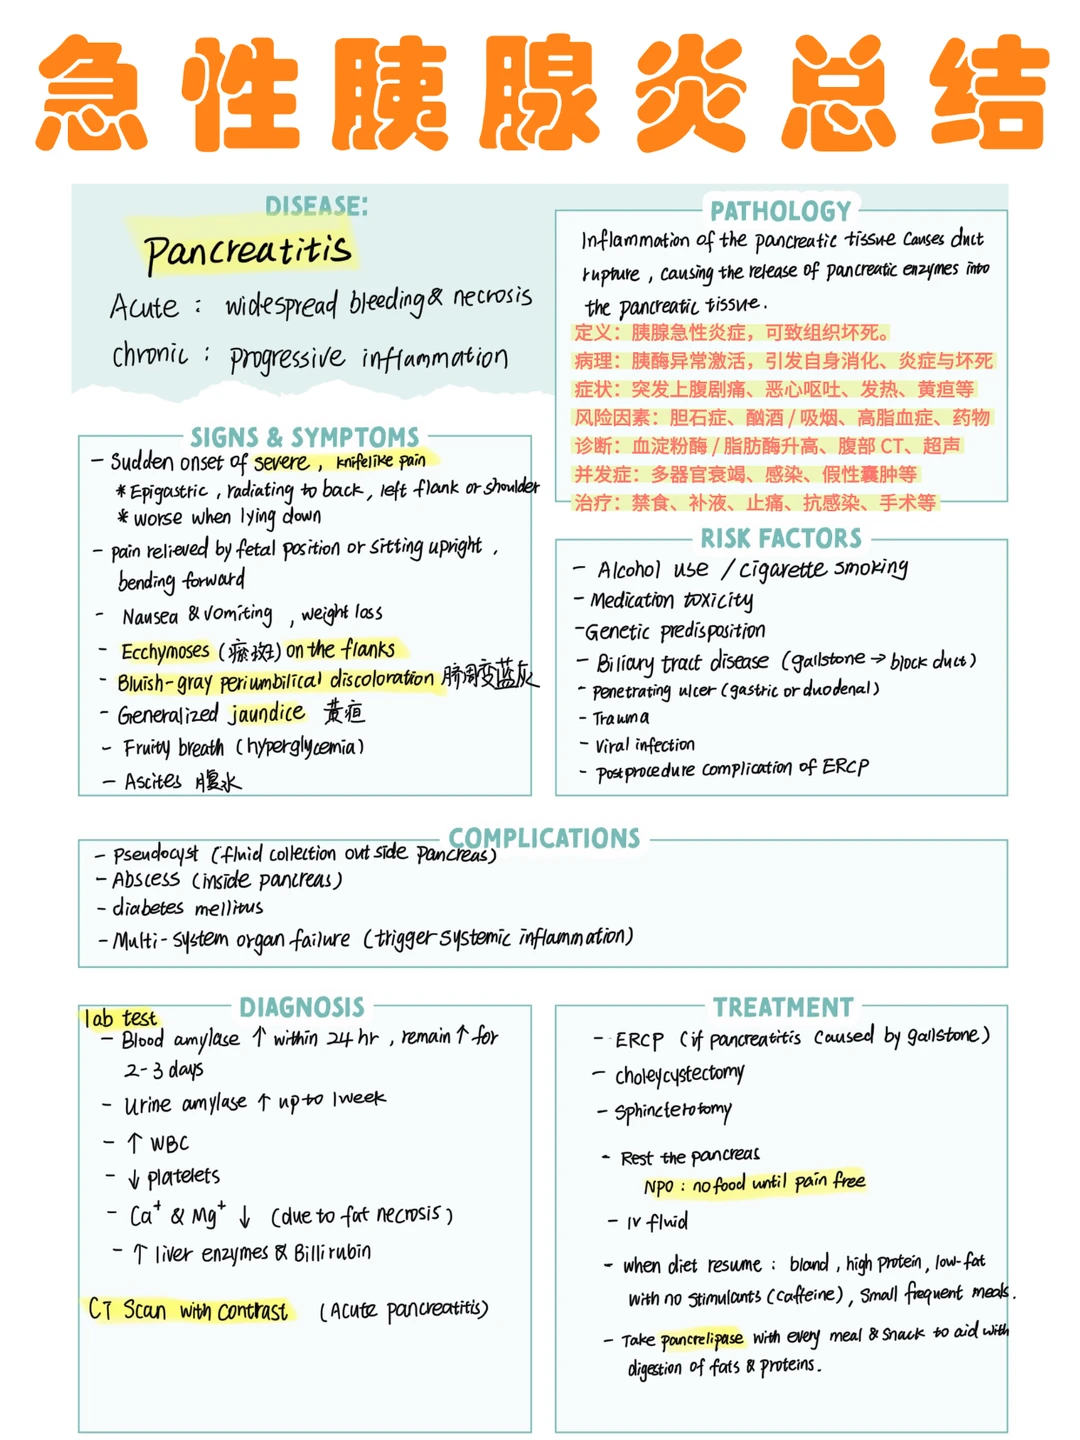 急性胰腺炎总结
DISEASE:
Pancreatitis
Acute : widespread bleeding & necrosis
chronic : progressive inflammation
PATHOLOGY
Inflammation of the pancreatic tissue causes duct
rupture , causing the release of pancreatic enzymes into
the pancreatic tissue.
定义：胰腺急性炎症，可致组织坏死。
病理：胰酶异常激活，引发自身消化、炎症与坏死
症状：突发上腹剧痛、恶心呕吐、发热、黄疸等
风险因素：胆石症、酗酒 / 吸烟、高脂血症、药物
诊断：血淀粉酶 / 脂肪酶升高、腹部 CT、超声
并发症：多器官衰竭、感染、假性囊肿等
治疗：禁食、补液、止痛、抗感染、手术等
SIGNS & SYMPTOMS
- Sudden onset of severe , knifelike pain
* Epigastric , radiating to back , left flank or shoulder
* worse when lying down
- pain relieved by fetal position or sitting upright ,
bending forward
- Nausea & vomiting , weight loss
- Ecchymoses (瘀斑) on the flanks
- Bluish-gray periumbilical discoloration 脐周变蓝灰
- Generalized jaundice 黄疸
- Fruity breath (hyperglycemia)
- Ascites 腹水
RISK FACTORS
- Alcohol use / cigarette smoking
- Medication toxicity
- Genetic predisposition
- Biliary tract disease (gallstone → block duct)
- Penetrating ulcer (gastric or duodenal)
- Trauma
- Viral infection
- Postprocedure complication of ERCP
COMPLICATIONS
- Pseudocyst (fluid collection outside pancreas)
- Abscess (inside pancreas)
- diabetes mellitus
- Multi-system organ failure (trigger systemic inflammation)
DIAGNOSIS
lab test
- Blood amylase ↑ within 24 hr , remain ↑ for
2-3 days
- Urine amylase ↑ up to 1 week
- ↑ WBC
- ↓ platelets
- Ca⁺ & Mg⁺ ↓ (due to fat necrosis)
- ↑ liver enzymes & Billirubin
CT Scan with contrast (Acute pancreatitis)
TREATMENT
- ERCP (if pancreatitis caused by gallstone)
- choleycystectomy
- Sphincterotomy
- Rest the pancreas
NPO : no food until pain free
- IV fluid
- when diet resume : bland , high protein , low-fat
with no stimulants (caffeine) , Small frequent meals.
- Take pancrelipase with every meal & snack to aid with
digestion of fats & proteins.